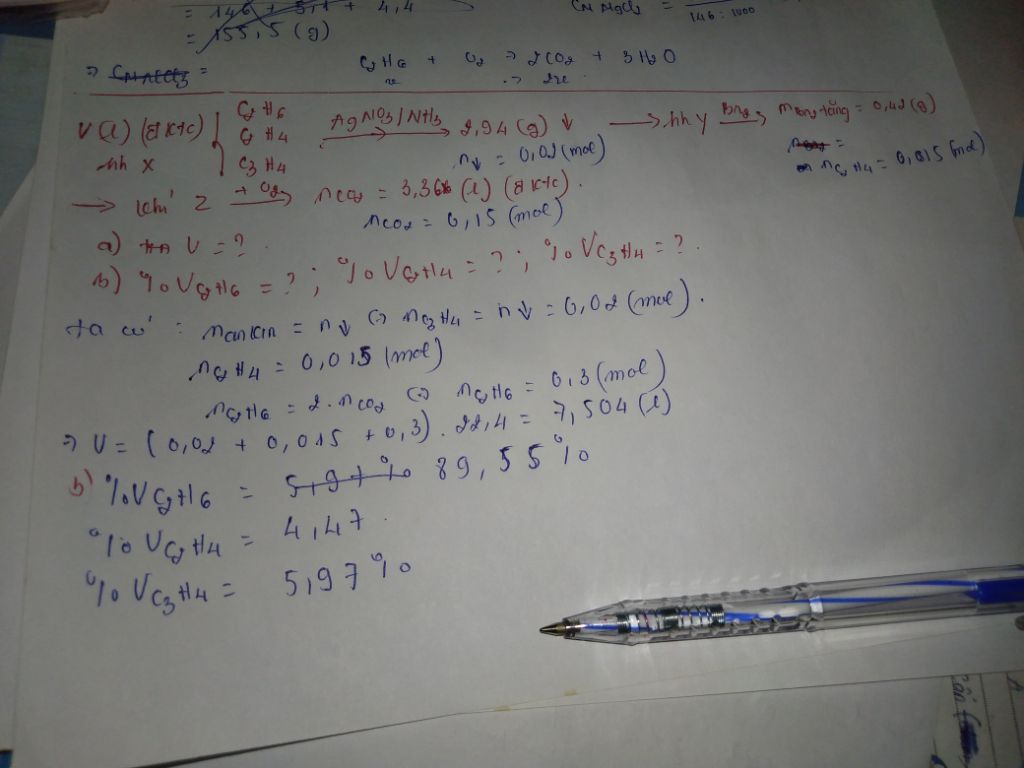 = 146 + 5,1 + 4,4
= 155,5 (g)
CM MgCl2 =
146 : 1000
=> CM AlCl3 =
C2H6 + O2 -> 2CO2 + 3H2O
x -> 2x
V(l) (đktc) { C2H6
hh X C2H4
C3H4
AgNO3/NH3 -> 2,94 (g) ↓ -> hh Y Br2 -> m bình tăng = 0,42 (g)
n↓ = 0,02 (mol)
nC2H4 = 0,015 (mol)
-> khí Z + O2 -> nCO2 = 3,36 (l) (đktc).
nCO2 = 0,15 (mol)
a) V = ?
b) %VC2H6 = ? ; %VC2H4 = ? ; %VC3H4 = ? .
ta có : nankin = n↓ <=> nC3H4 = n↓ = 0,02 (mol).
nC2H4 = 0,015 (mol)
nC2H6 = 2. nCO2 <=> nC2H6 = 0,3 (mol)
=> V = (0,02 + 0,015 + 0,3). 22,4 = 7,504 (l)
b) %VC2H6 = 5,97% 89,55%
%VC2H4 = 4,47
%VC3H4 = 5,97%